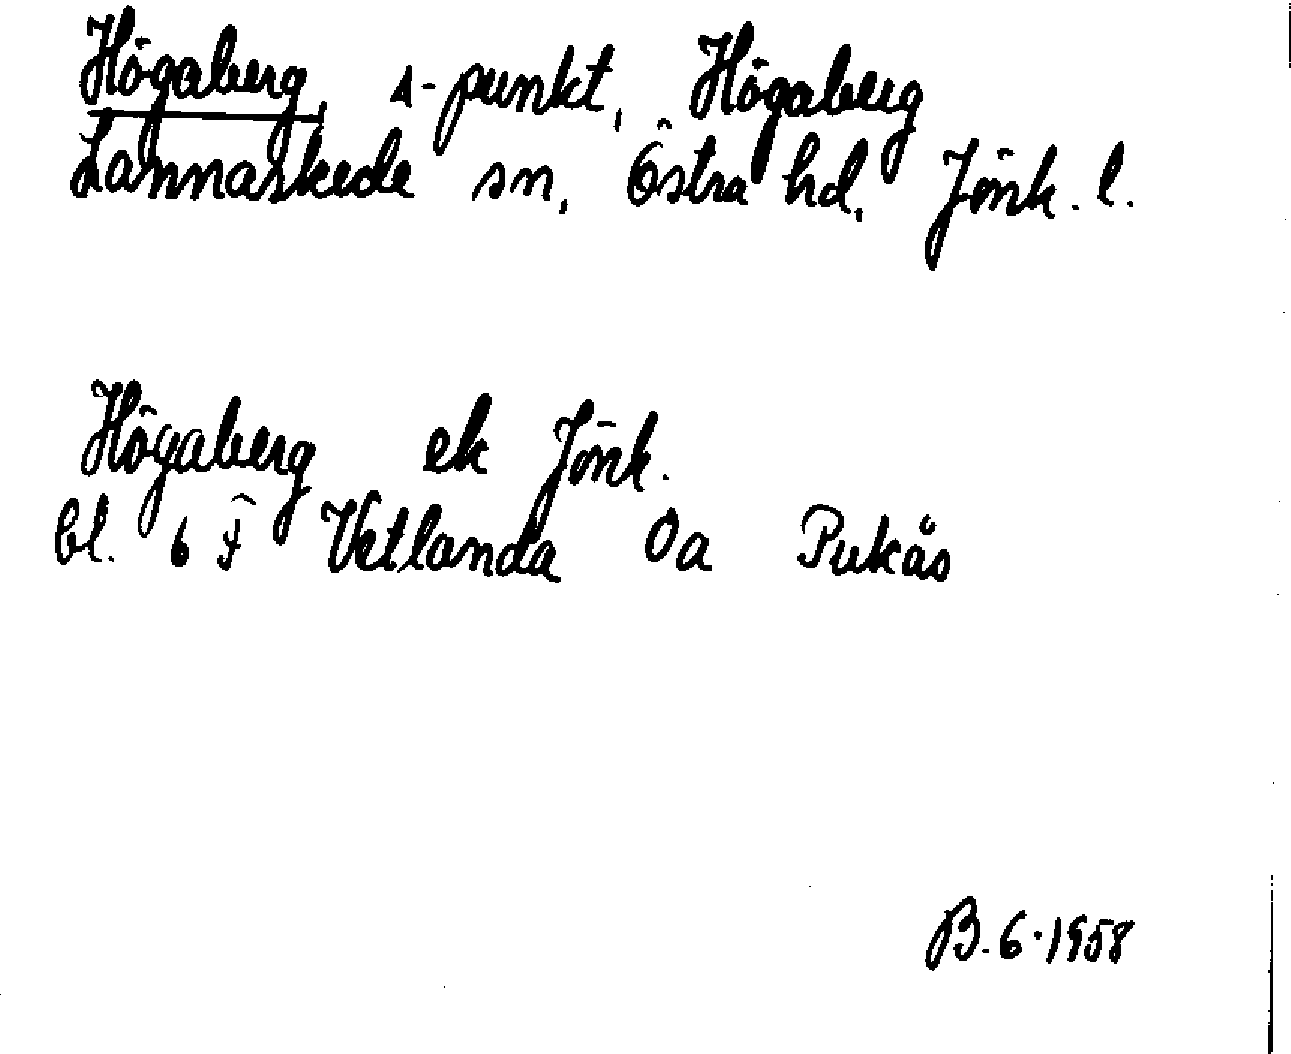 Högaberg, Δ-punkt, Högaberg
Lannaskede sn, Östra hd, Jönk. l.
Högaberg ek Jönk.
bl. 6 F Vetlanda 0a Pukås
B. 6. 1958